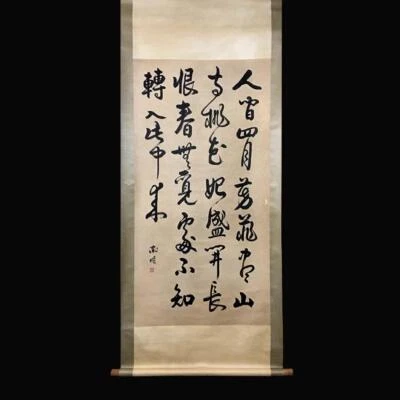 人間四月芳菲盡山
寺桃花始盛開長
恨春無覓處不知
轉入此中來